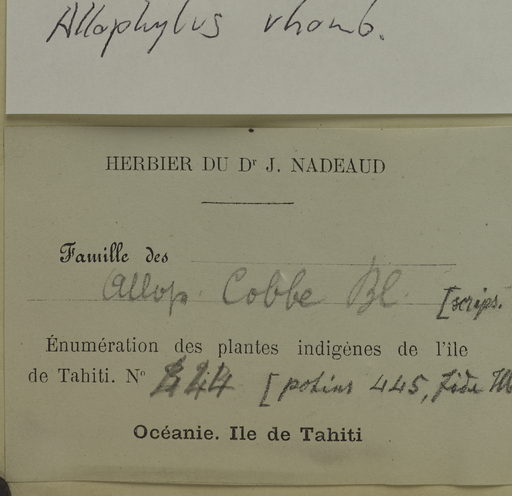 Allophylus rhomb.
HERBIER DU Dr J. NADEAUD
Famille des
Allop. Cobbe Bl. [scrips.
Énumération des plantes indigènes de l'île
de Tahiti. No 444 [potius 445, fide
Océanie. Ile de Tahiti